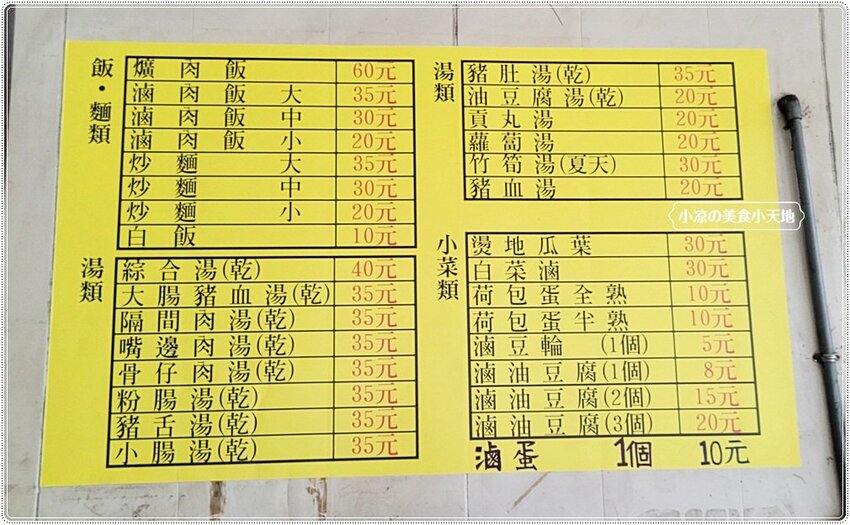 飯・麵類
爌肉飯 60元
滷肉飯 大 35元
滷肉飯 中 30元
滷肉飯 小 20元
炒麵 大 35元
炒麵 中 30元
炒麵 小 20元
白飯 10元
湯類
綜合湯(乾) 40元
大腸豬血湯(乾) 35元
隔間肉湯(乾) 35元
嘴邊肉湯(乾) 35元
骨仔肉湯(乾) 35元
粉腸湯(乾) 35元
豬舌湯(乾) 35元
小腸湯(乾) 35元
湯類
豬肚湯(乾) 35元
油豆腐湯(乾) 20元
貢丸湯 20元
蘿蔔湯 20元
竹筍湯(夏天) 30元
豬血湯 20元
小凉の美食小天地
小菜類
燙地瓜葉 30元
白菜滷 30元
荷包蛋全熟 10元
荷包蛋半熟 10元
滷豆輪 (1個) 5元
滷油豆腐(1個) 8元
滷油豆腐(2個) 15元
滷油豆腐(3個) 20元
滷蛋 1個 10元